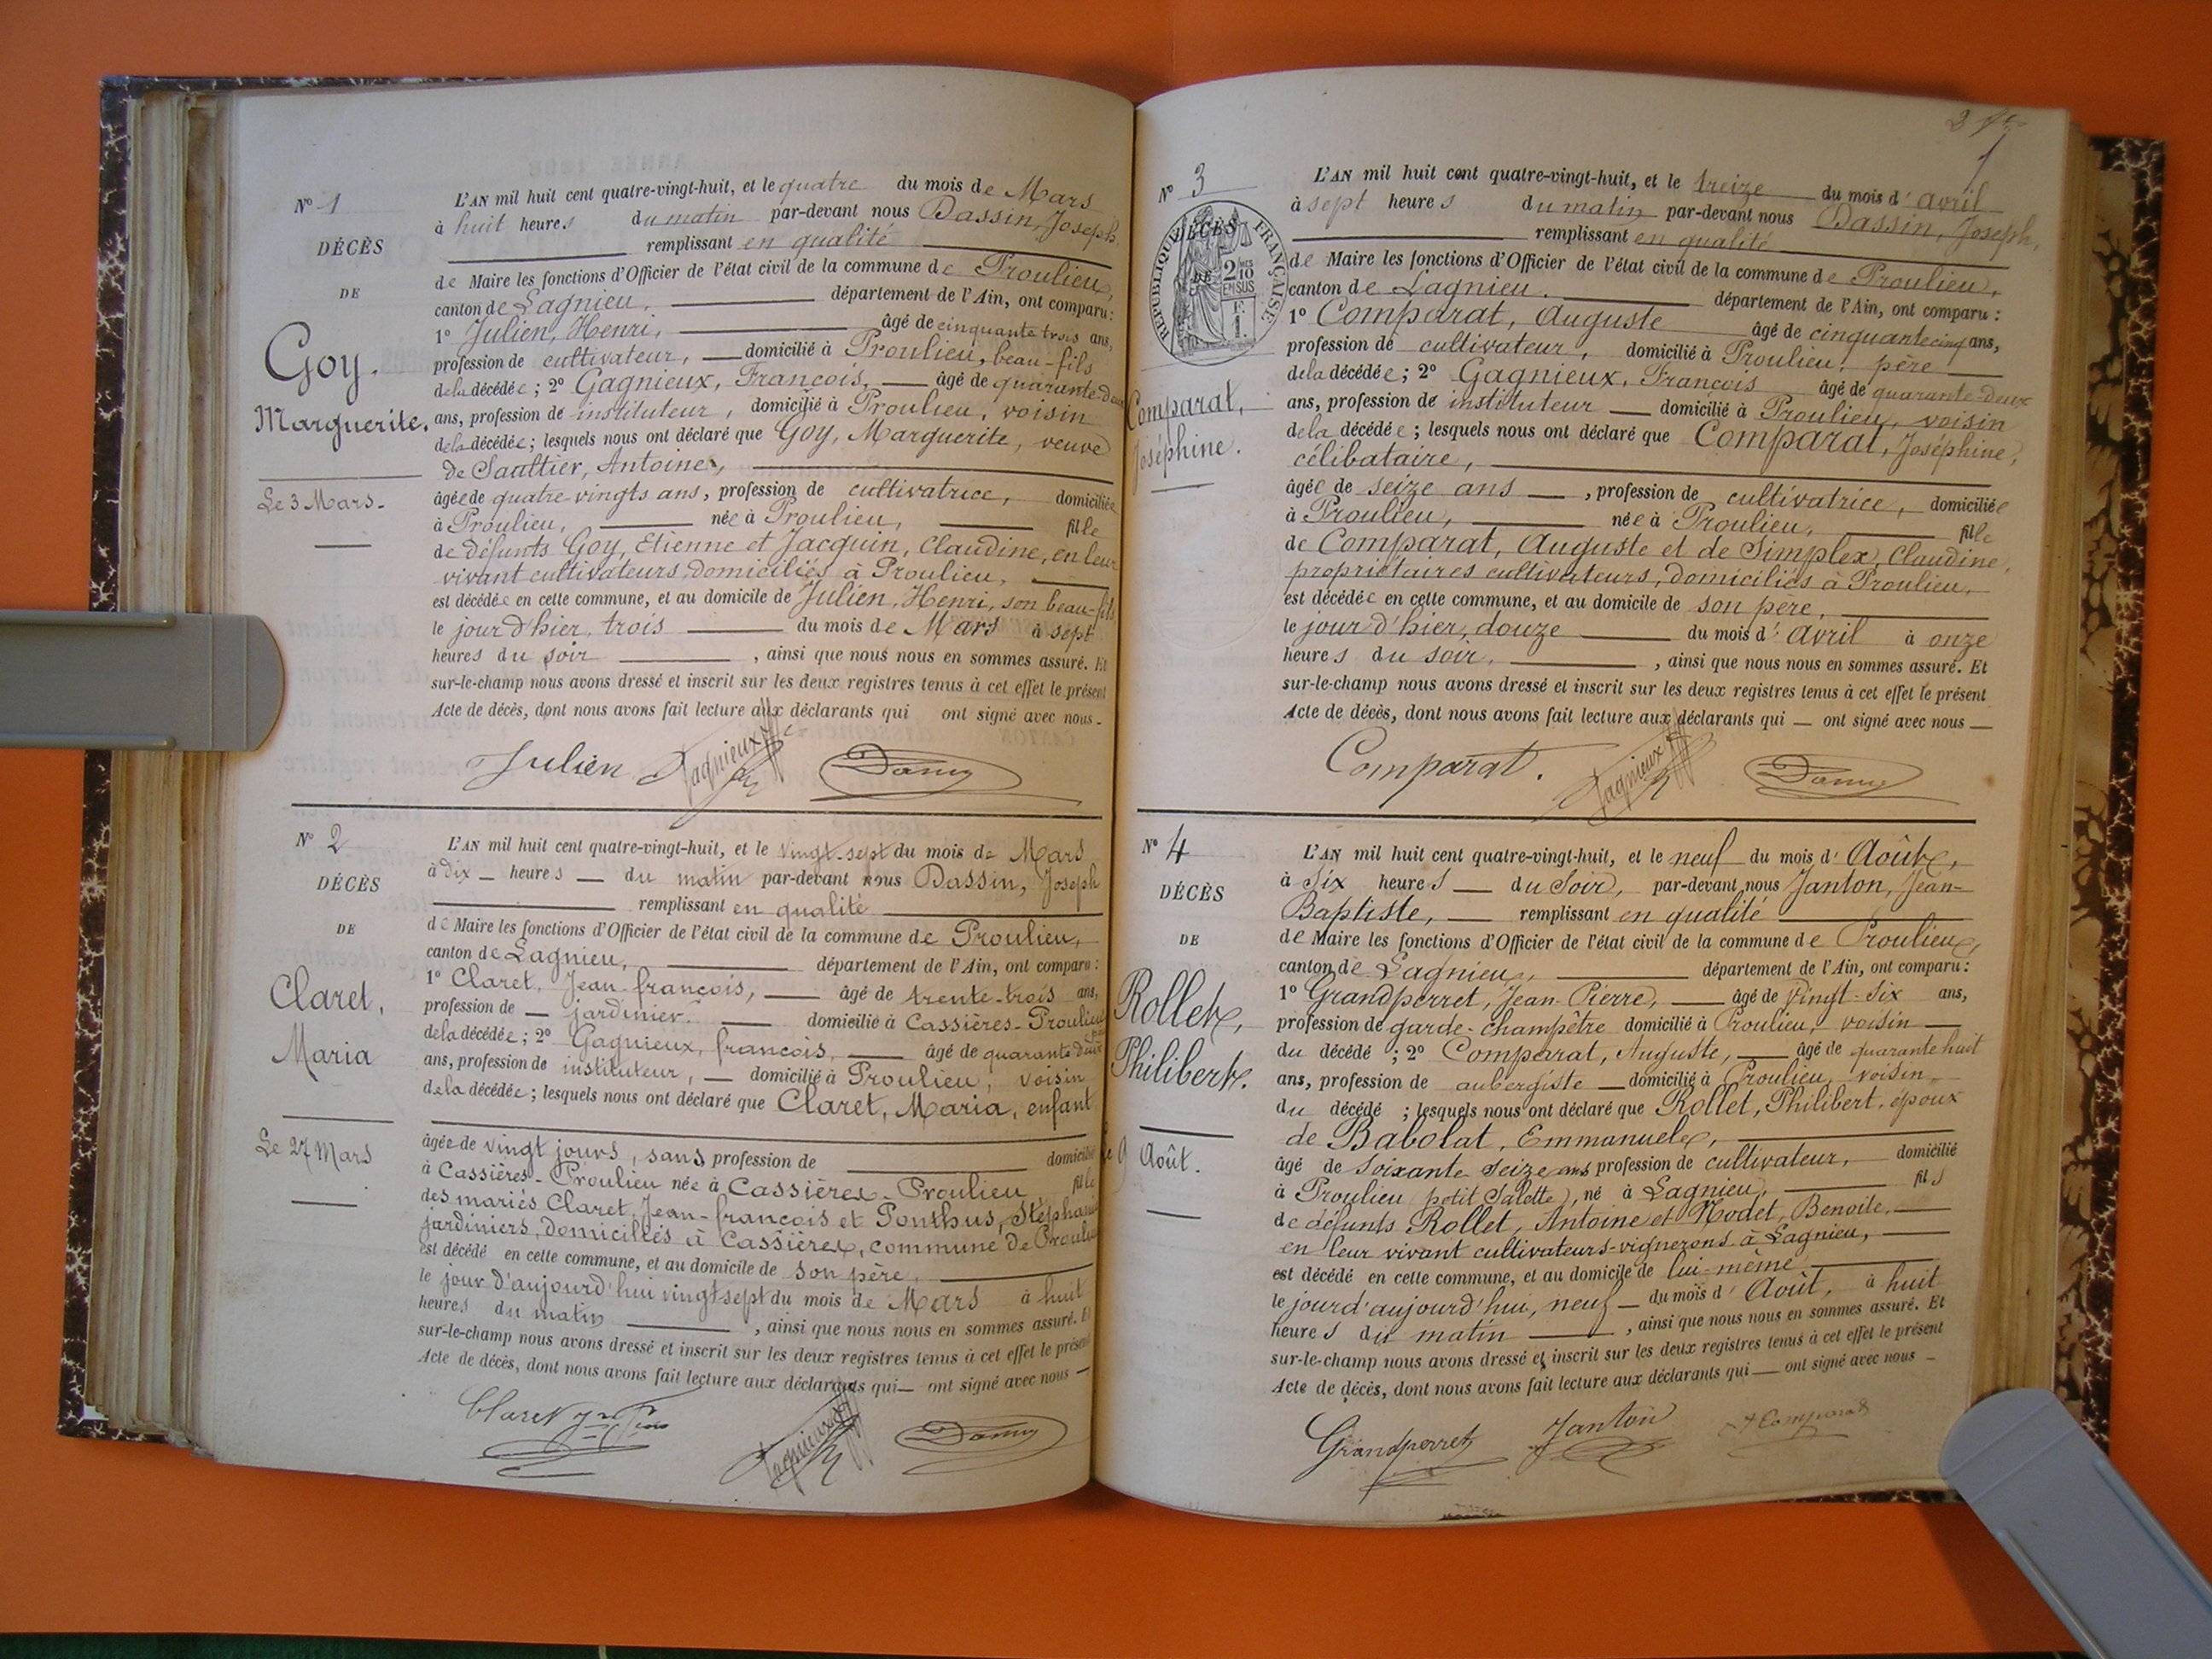 N° 1
DÉCÈS
DE
Goy.
Marguerite.
Le 3 Mars.
L'AN mil huit cent quatre-vingt-huit, et le quatre du mois de Mars
à huit heures du matin par-devant nous Dassin, Joseph
remplissant en qualité
de Maire les fonctions d'Officier de l'état civil de la commune de Proulieu,
canton de Lagnieu, département de l'Ain, ont comparu :
1° Julien, Henri, âgé de cinquante trois ans,
profession de cultivateur, domicilié à Proulieu, beau-fils
de la décédée ; 2° Gagnieux, François, âgé de quarante-deux
ans, profession de instituteur, domicilié à Proulieu, voisin
de la décédée ; lesquels nous ont déclaré que Goy, Marguerite, veuve
de Saultier, Antoine,
âgée de quatre-vingts ans, profession de cultivatrice, domiciliée
à Proulieu, née à Proulieu, fille
de défunts Goy, Etienne et Jacquin, Claudine, en leur
vivant cultivateurs, domiciliés à Proulieu,
est décédée en cette commune, et au domicile de Julien, Henri, son beau-fils
le jour d'hier, trois du mois de Mars à sept
heures du soir, ainsi que nous nous en sommes assuré. Et
sur-le-champ nous avons dressé et inscrit sur les deux registres tenus à cet effet le présent
Acte de décès, dont nous avons fait lecture aux déclarants qui ont signé avec nous.
Julien Gagnieux
N° 2
DÉCÈS
DE
Claret,
Maria
Le 27 Mars
L'AN mil huit cent quatre-vingt-huit, et le vingt-sept du mois de Mars
à dix heures du matin par-devant nous Dassin, Joseph
remplissant en qualité
de Maire les fonctions d'Officier de l'état civil de la commune de Proulieu,
canton de Lagnieu, département de l'Ain, ont comparu :
1° Claret, Jean-françois, âgé de trente-trois ans,
profession de jardinier. domicilié à Cassières-Proulieu
de la décédée ; 2° Gagnieux, françois, âgé de quarante deux
ans, profession de instituteur, domicilié à Proulieu, voisin
de la décédée ; lesquels nous ont déclaré que Claret, Maria, enfant
âgée de vingt jours, sans profession de domicilié
à Cassières-Proulieu née à Cassières-Proulieu fille
des mariés Claret, Jean-françois et Ponthus, Stéphanie
jardiniers, domiciliés à Cassières, commune de Proulieu
est décédé en cette commune, et au domicile de son père,
le jour d'aujourd'hui vingt sept du mois de Mars à huit
heures du matin, ainsi que nous nous en sommes assuré. Et
sur-le-champ nous avons dressé et inscrit sur les deux registres tenus à cet effet le présent
Acte de décès, dont nous avons fait lecture aux déclarants qui ont signé avec nous
Claret Gagnieux
N° 3
DÉCÈS
DE
RÉPUBLIQUE FRANÇAISE
2 MES
10
EN SUS
1 F.
Comparat,
Joséphine.
L'AN mil huit cent quatre-vingt-huit, et le treize du mois d'avril
à sept heures du matin par-devant nous Dassin, Joseph,
remplissant en qualité
de Maire les fonctions d'Officier de l'état civil de la commune de Proulieu,
canton de Lagnieu. département de l'Ain, ont comparu :
1° Comparat, Auguste âgé de cinquante cinq ans,
profession de cultivateur, domicilié à Proulieu, père
de la décédée ; 2° Gagnieux, François âgé de quarante-deux
ans, profession de instituteur domicilié à Proulieu, voisin
de la décédée ; lesquels nous ont déclaré que Comparat, Joséphine,
célibataire,
âgée de seize ans, profession de cultivatrice, domiciliée
à Proulieu, née à Proulieu, fille
de Comparat, Auguste et de Simplex, Claudine,
propriétaires cultivateurs, domiciliés à Proulieu,
est décédée en cette commune, et au domicile de son père,
le jour d'hier, douze du mois d'avril à onze
heures du soir, ainsi que nous nous en sommes assuré. Et
sur-le-champ nous avons dressé et inscrit sur les deux registres tenus à cet effet le présent
Acte de décès, dont nous avons fait lecture aux déclarants qui ont signé avec nous
Comparat. Gagnieux
N° 4
DÉCÈS
DE
Rollet,
Philibert.
Le 9 Août.
L'AN mil huit cent quatre-vingt-huit, et le neuf du mois d'Août,
à Six heures du Soir, par-devant nous Janton, Jean-
Baptiste, remplissant en qualité
de Maire les fonctions d'Officier de l'état civil de la commune de Proulieu,
canton de Lagnieu, département de l'Ain, ont comparu :
1° Grandperret, Jean-Pierre, âgé de vingt-six ans,
profession de garde-champêtre domicilié à Proulieu, voisin
du décédé ; 2° Comparat, Auguste, âgé de quarante huit
ans, profession de aubergiste domicilié à Proulieu, voisin
du décédé ; lesquels nous ont déclaré que Rollet, Philibert, époux
de Babolat, Emmanuele,
âgé de soixante seize ans profession de cultivateur, domicilié
à Proulieu (petit Salette), né à Lagnieu, fils
de défunts Rollet, Antoine et Nodet, Benoite,
en leur vivant cultivateurs-vignerons à Lagnieu,
est décédé en cette commune, et au domicile de lui-même
le jour d'aujourd'hui, neuf du mois d'Août, à huit
heures du matin, ainsi que nous nous en sommes assuré. Et
sur-le-champ nous avons dressé et inscrit sur les deux registres tenus à cet effet le présent
Acte de décès, dont nous avons fait lecture aux déclarants qui ont signé avec nous
Grandperret Janton Comparat